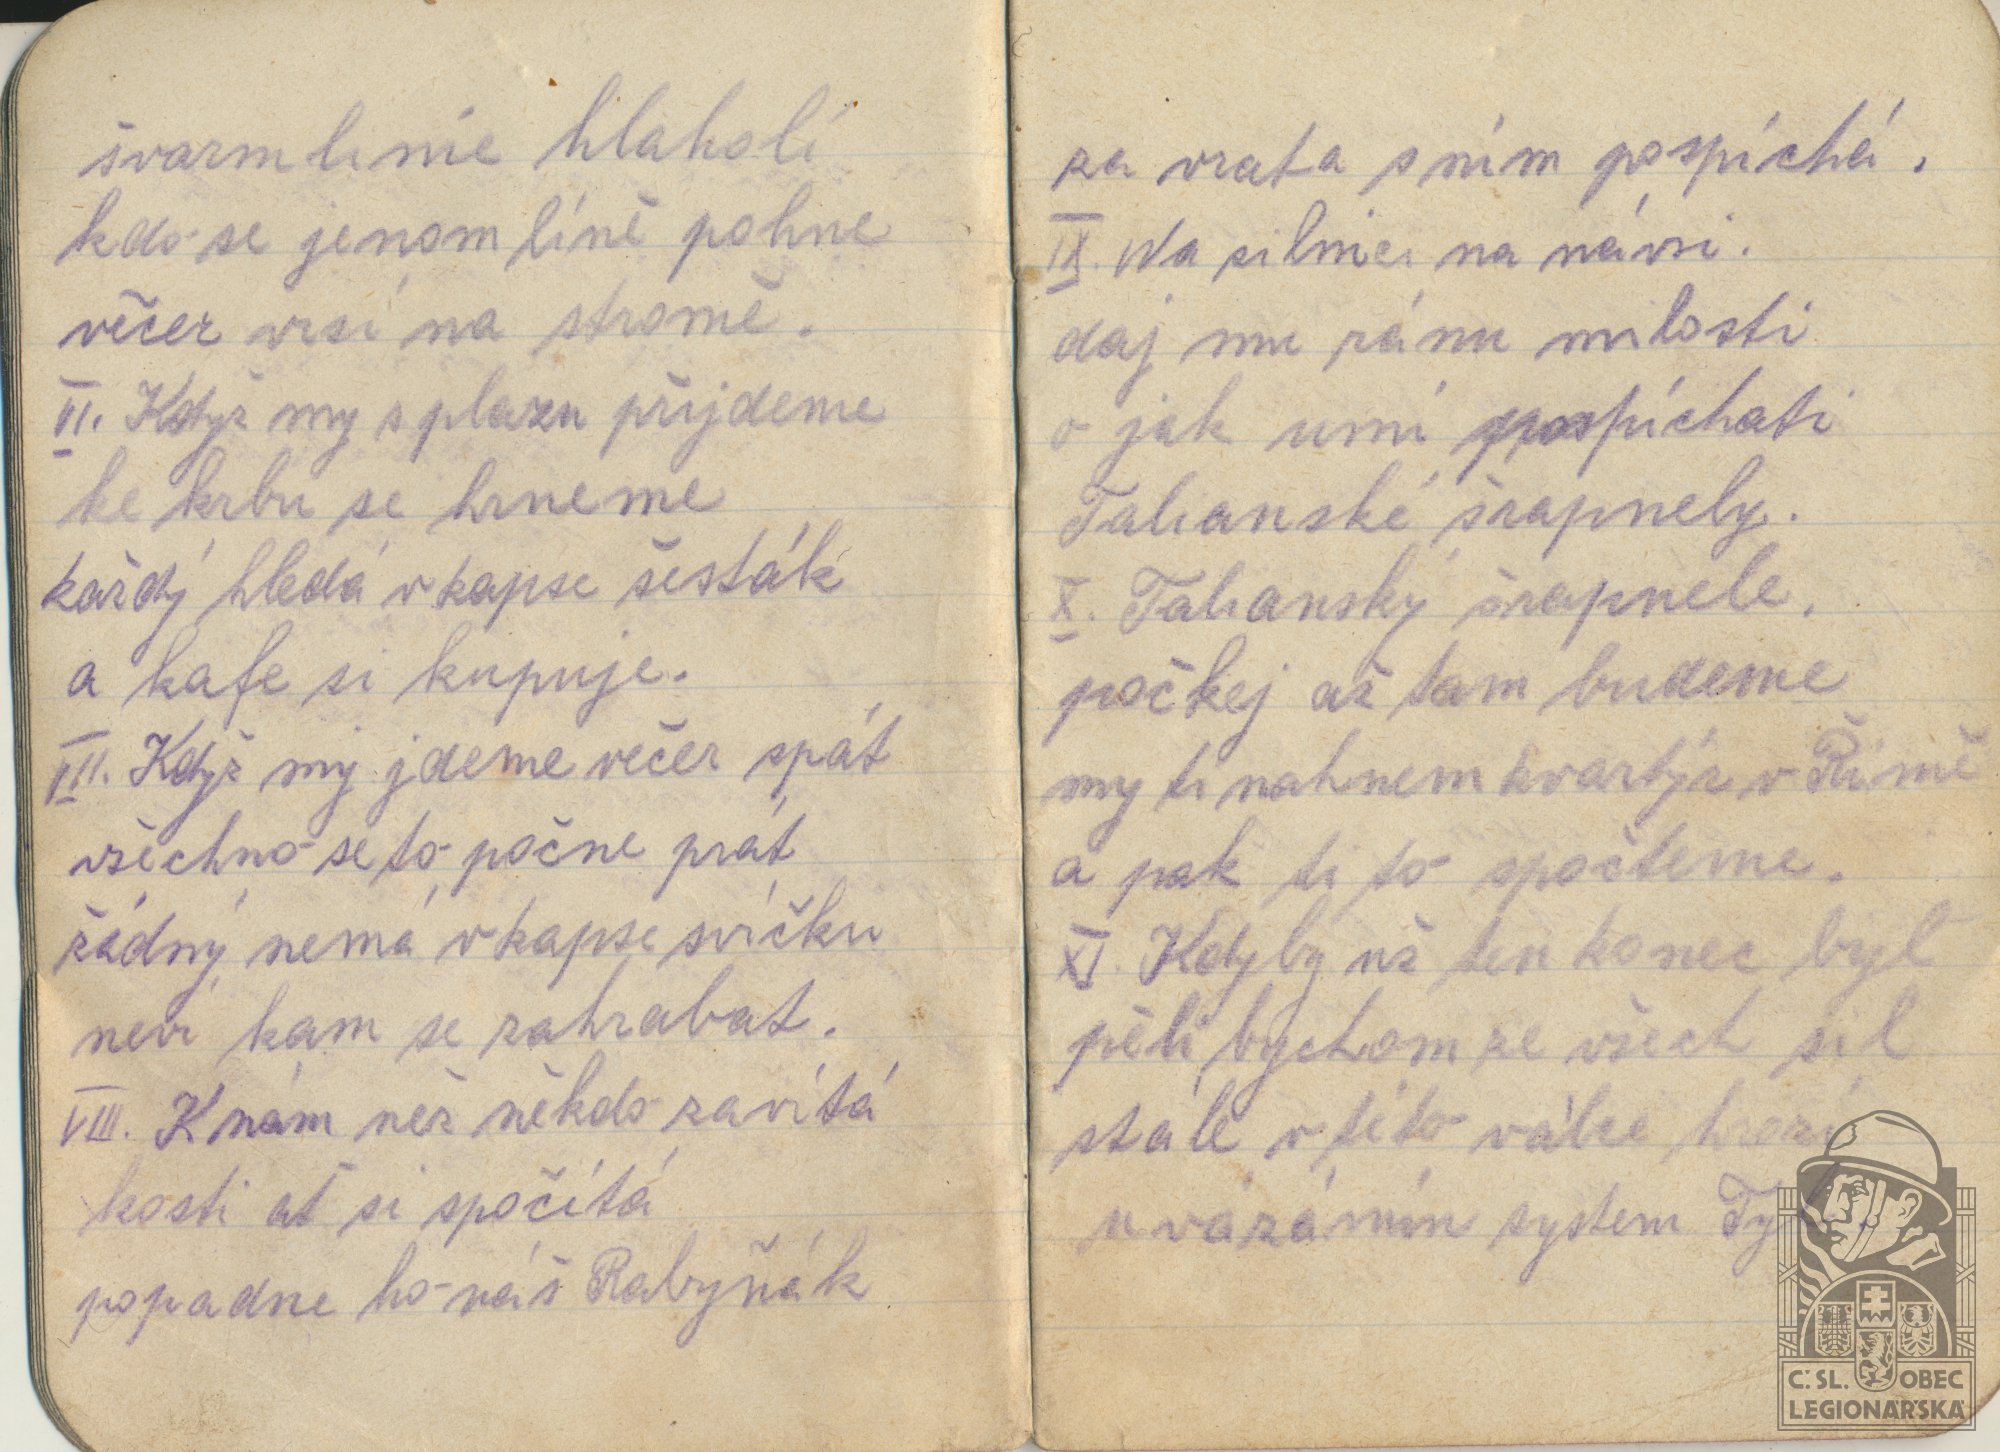 švarmlinie hlaholí
kdo se jenom líně pohne
věčer visí na stromě.
VI. Když my s plazu přijdeme
ke krbu se hrneme
každý hledá v kapse šesták
a kafe si kupuje.
VII. Když my jdeme večer spát
všechno se to počne prát
žádný nemá v kapse svíčku
neví kam se zahrabat.
VIII. K nám něž někdo zavítá
kosti ať si spočítá
popadne ho náš Rabyňák
za vrata s ním pospíchá.
IX. Na silnici na návsi.
daj mu ránu milosti
o jak umí pospíchati
Talianské šrapnely.
X. Talianský šrapnele.
počkej až tam budeme
my ti nahnem kvartýr v Římě
a pak ti to spočteme.
XI. Kdyby už ten konec byl
pěli bychom ze všech sil
stále v této válce hrozí
uvázáním system
Č. SL. OBEC
LEGIONÁŘSKÁ